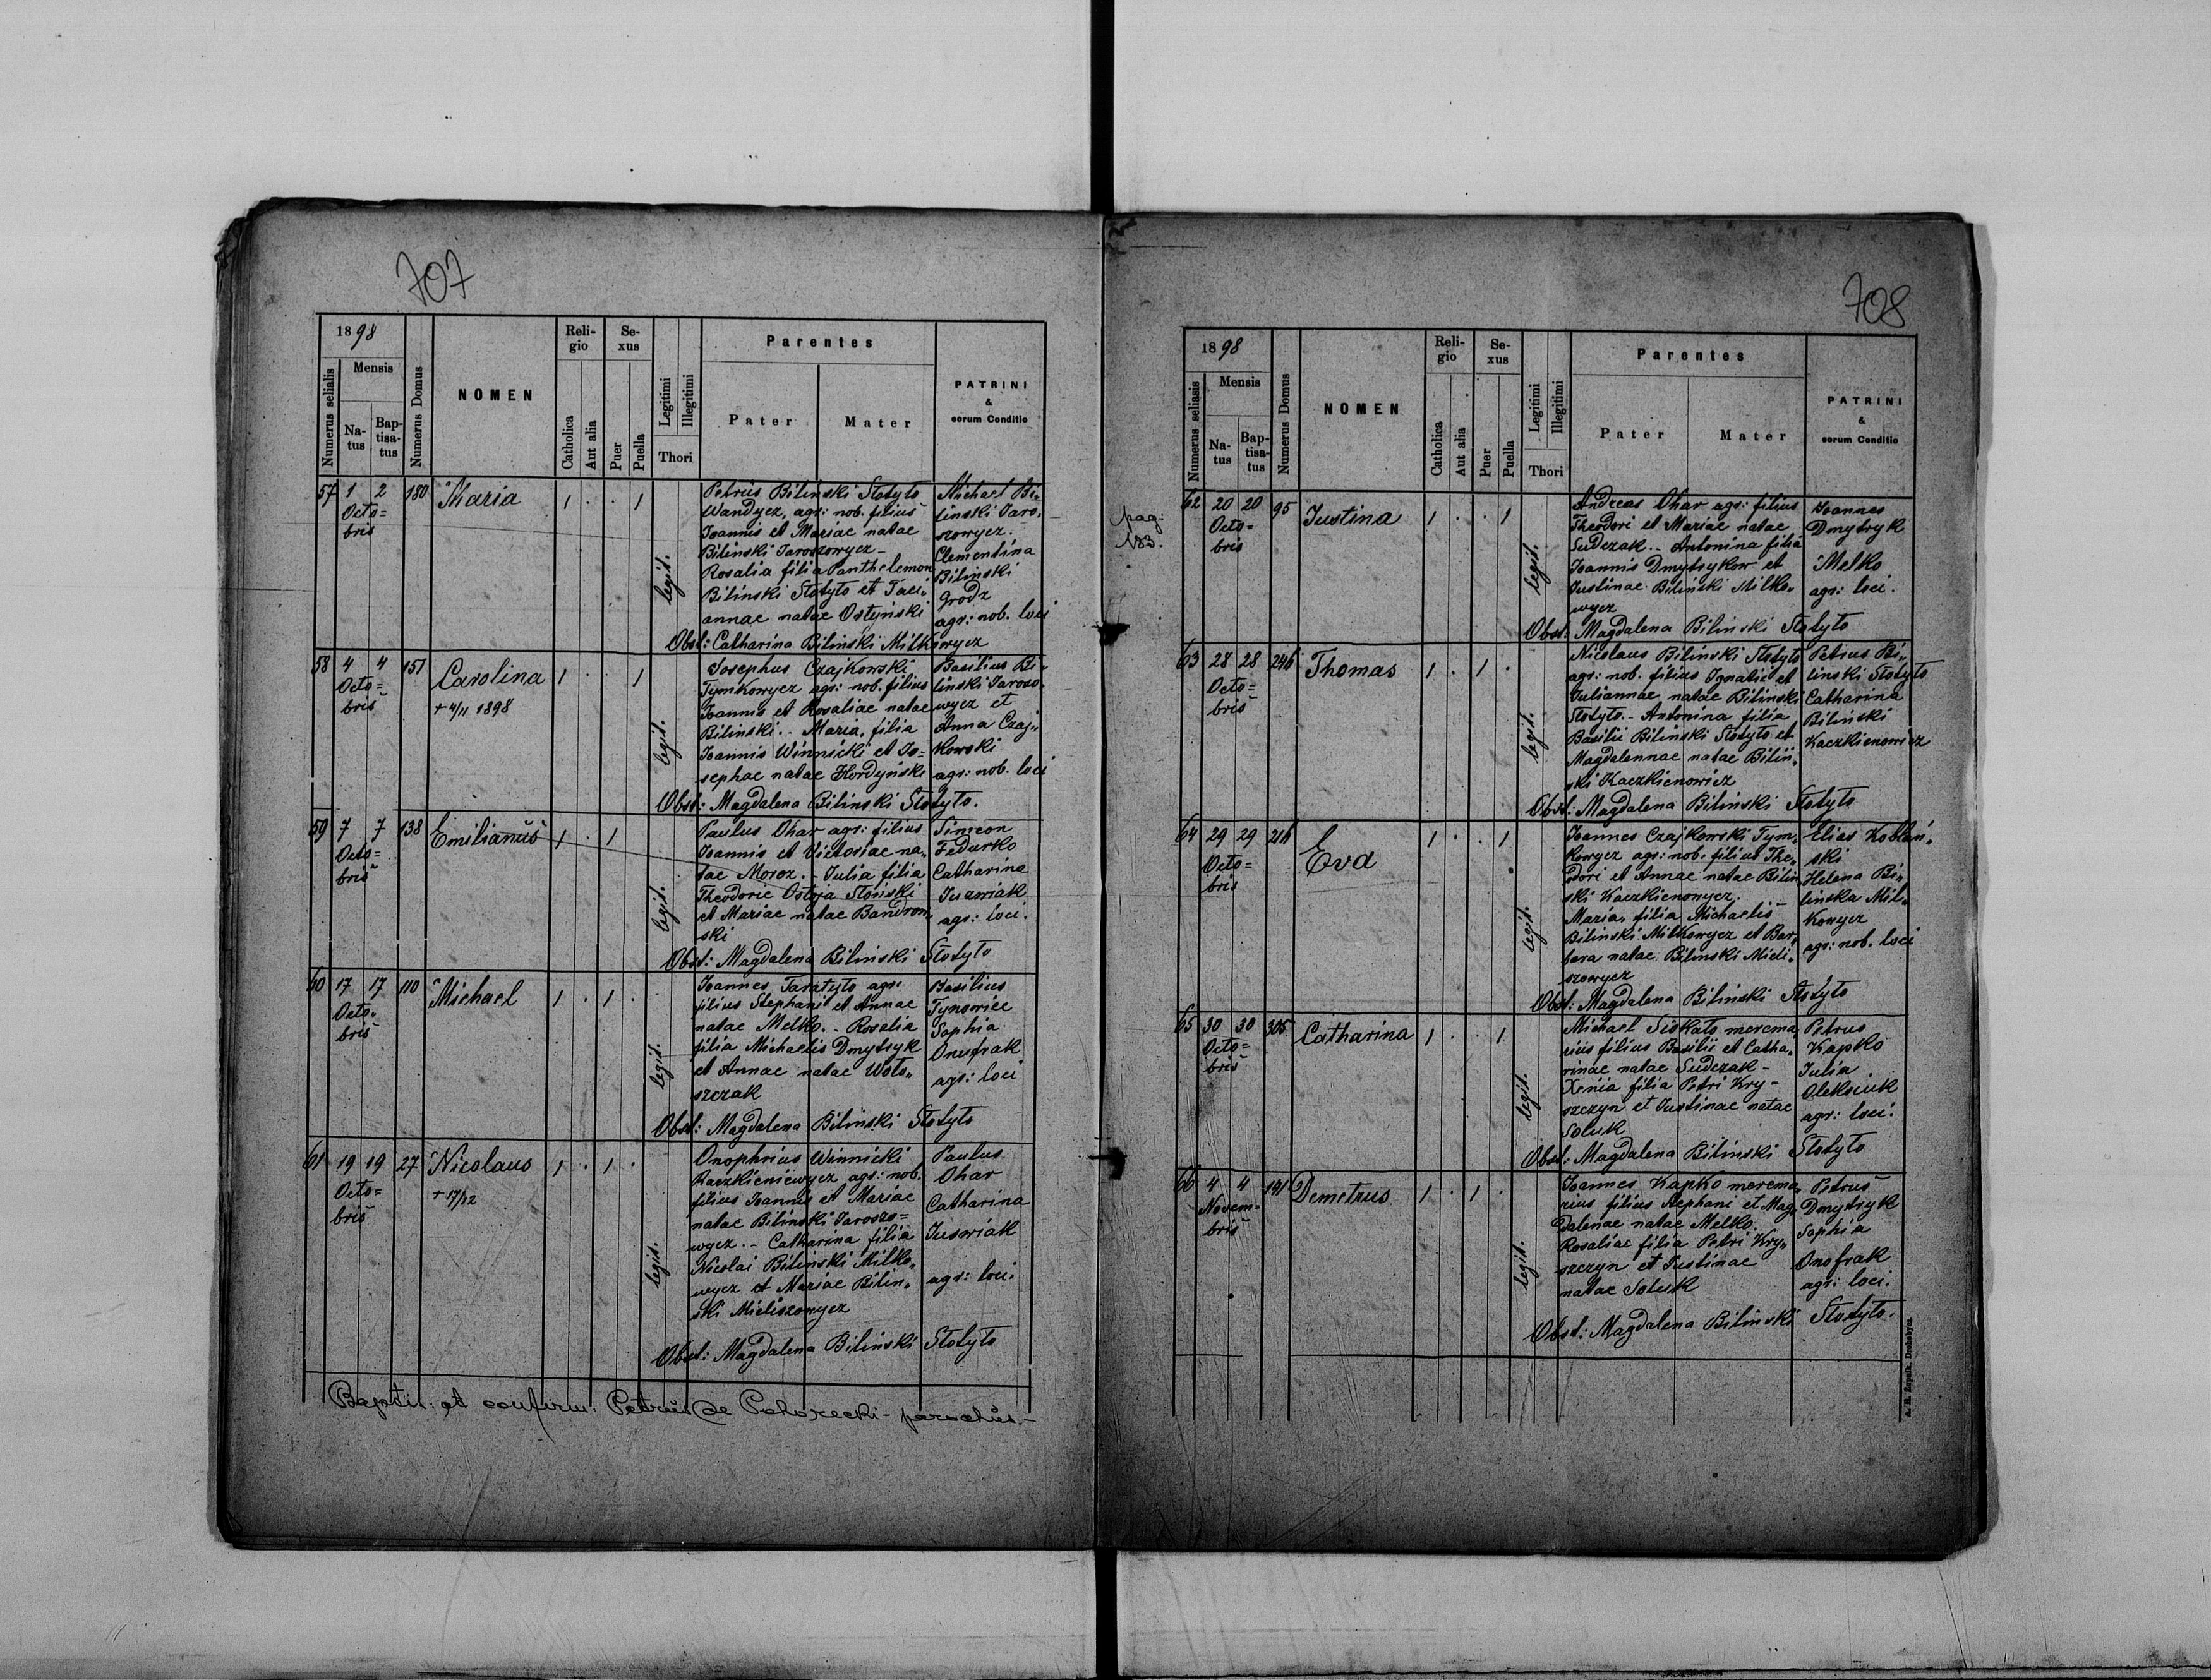 707
18 98
Numerus serialis
Mensis
Natus
Baptisatus
Numerus Domus
NOMEN
Religio
Catholica
Aut alia
Sexus
Puer
Puella
Legitimi
Illegitimi
Thori
Parentes
Pater
Mater
PATRINI
&
eorum Conditio
57 1 2 Octo=
bris
180 Maria 1 . . 1 legit.
Petrus Bilinski Stotyto
Wandycz, agr: nob. filius
Joannis et Mariae natae
Bilinski Jaroszowycz -
Rosalia filia Panthelemon
Bilinski Stotyto et Taci„
annae natae Ostynski
Michael Bi„
linski Jaro„
szowycz.
Clementina
Bilinski
Grodz
agr: nob. loci
Obst: Catharina Bilinski Milkowycz
58 4 4 Octo=
bris
151 Carolina 1 . . 1 legit.
+ 4/11 1898
Josephus Czajkowski
Tymkowycz agr: nob. filius
Joannis et Rosaliae natae
Bilinski. - Maria, filia
Joannis Winnicki et Jo=
sephae natae Hordynski
Basilius Bi„
linski Jaroso„
wycz et
Anna Czaj„
kowski
agr: nob. loci
Obst: Magdalena Bilinski Stotyto.
59 7 7 Octo=
bris
138 Emilianus 1 . 1 legit.
Paulus Ohar agr: filius
Joannis et Victoriae na„
tae Moroz. - Julia filia
Theodorie Ostoja Stosiski
et Mariae natae Bandrow„
ski
Simeon
Fedurko
Catharina
Juzwiak
agr: loci.
Obst: Magdalena Bilinski Stotyto
60 17 17 Octo„
bris
110 Michael 1 . 1 . legit.
Joannes Taratyto agr:
filius Stephani et Annae
natae Melko. - Rosalia
filia Michaelis Dmytryk
et Annae natae Woto„
szczak
Basilius
Tynowiec
Sophia
Onufrak
agr: loci
Obst: Magdalena Bilinski Stotyto
61 19 19 Octo=
bris
27 Nicolaus 1 . 1 . legit.
+ 17/12
Onophrius Winnicki
Kaczkieniewycz agr: nob.
filius Joannis et Mariae
natae Bilinski Jaroszo=
wycz. - Catharina filia
Nicolai Bilinski Milko„
wycz et Mariae Bilin„
ski Mieliszowycz
Paulus
Ohar
Catharina
Juswiak
agr: loci.
Obst: Magdalena Bilinski Stotyto
Baptis: et confirm: Petrus de Pohorecki - parochus. -
708
18 98
Numerus serialis
Mensis
Natus
Baptisatus
Numerus Domus
NOMEN
Religio
Catholica
Aut alia
Sexus
Puer
Puella
Legitimi
Illegitimi
Thori
Parentes
Pater
Mater
PATRINI
&
eorum Conditio
pag:
183.
62 20 20 Octo=
bris
95 Justina 1 . . 1 legit.
Andreas Ohar agr: filius
Theodori et Mariae natae
Sudczak. - Antonina filia
Joannis Dmytrykow et
Justinae Bilinski Milko„
wycz
Joannes
Dmytryk
Melko
agr: loci.
Obst: Magdalena Bilinski Stotyto
63 28 28 Octo=
bris
246 Thomas 1 . 1 . legit.
Nicolaus Bilinski Stotyto
agr: nob. filius Ignatii et
Juliannae natae Bilinski
Stotyto. - Antonina filia
Basilii Bilinski Stotyto et
Magdalennae natae Bilin„
ski Kaczkienowicz
Petrus Bi„
linski Stotyto
Catharina
Bilinski
Kaczkienowicz
Obst: Magdalena Bilinski Stotyto
64 29 29 Octo=
bris
216 Eva 1 . . 1 legit.
Joannes Czajkowski Tym„
kowycz agr: nob. filius The„
odori et Annae natae Bilin
ski Kaczkienowycz.
Maria, filia Michaelis
Bilinski Milkowycz et Bar„
bara natae Bilinski Mieli„
szowycz
Elias Koblan„
ski
Helena Bi„
linska Mil„
kowycz
agr: nob. loci
Obst: Magdalena Bilinski Stotyto
65 30 30 Octo=
bris
305 Catharina 1 . . 1 legit.
Michael Siokato mercena„
rius filius Basilii et Catha„
rinae natae Sudczak -
Xenia filia Petri Kry-
szczyn et Justinae natae
Soluk
Petrus
Kapko
Julia
Oleksiuk
agr: loci.
Obst: Magdalena Bilinski Stotyto
66 4 4 Novem=
bris
141 Demetrus 1 . 1 . legit.
Joannes Kapko mercena„
rius filius Stephani et Mag„
dalenae natae Melko.
Rosaliae filia Petri Kry„
szczyn et Justinae
natae Soluk
Petrus
Dmytryk
Sophia
Onofrak
agr: loci.
Obst: Magdalena Bilinski Stotyto.